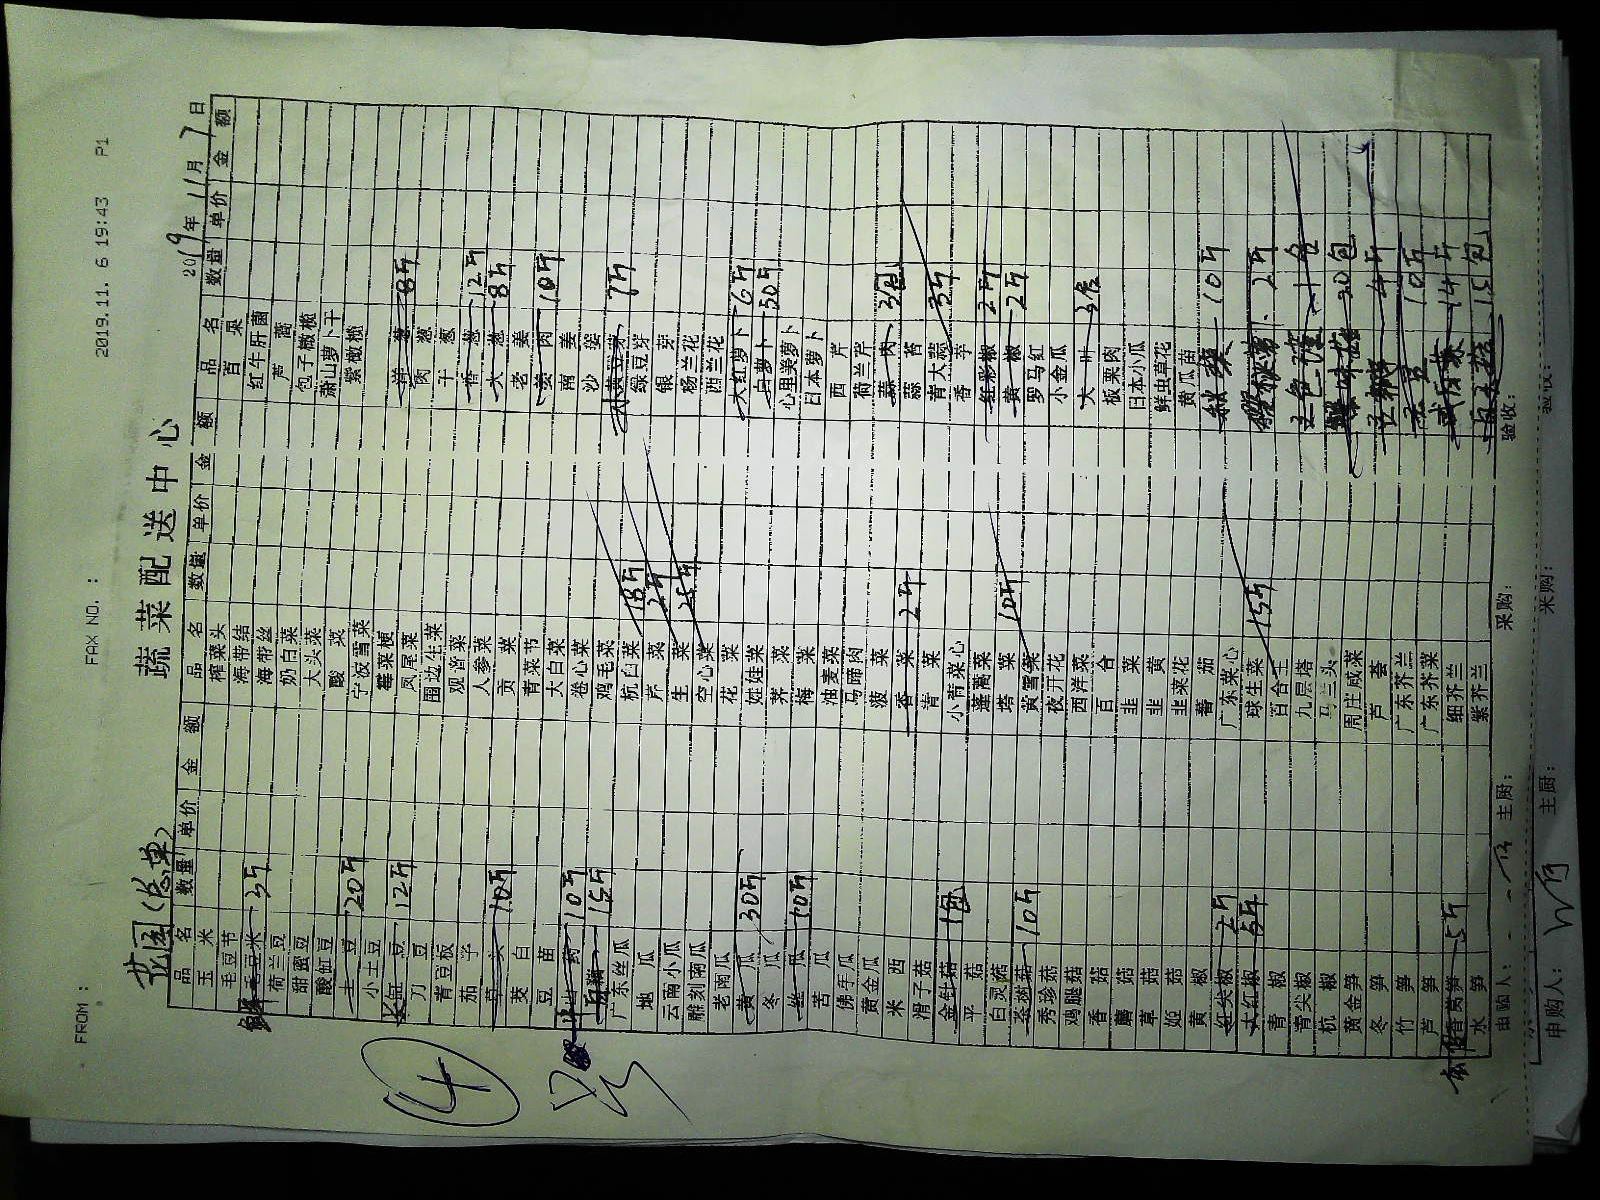 FROM :
FAX NO. :
2019.11. 6 19:43 P1
蔬菜配送中心
花园(总单)
2019年11月7日
品名 数量 单价 金额 品名 数量 单价 金额 品名 数量 单价 金额
玉米 榨菜头 百果
毛豆节 海带结 红牛肝菌
鲜毛豆米 3斤 海带丝 芦蒿
荷兰豆 奶白菜 包子橄榄
甜蜜豆 大头菜 萧山萝卜干
酸缸豆 酸菜 紫橄榄
土豆 20斤 宁波雪菜
小土豆 霉菜梗 洋葱 8斤
长缸豆 12斤 凤尾菜 肉葱
刀豆 围边生菜 干葱
青豆板 观滑菜 香葱 12斤
茄子 人参菜 大葱 8斤
草头 10斤 贡菜 老姜
茭白 青菜节 姜肉 10斤
豆苗 大白菜 南姜
山药 10斤 卷心菜 沙姜
15斤 鸡毛菜 黄豆芽 7斤
广东丝瓜 杭白菜 18斤 绿豆芽
地瓜 芹菜 2斤 银芽
云南小瓜 生菜 25斤 杨兰花
雕刻南瓜 空心菜 西兰花
老南瓜 花菜 大红萝卜 6斤
黄瓜 30斤 娃娃菜 白萝卜 50斤
冬瓜 荠菜 心里美萝卜
丝瓜 10斤 梅菜 日本萝卜
苦瓜 油麦菜 西芹
佛手瓜 马蹄肉 荷兰芹
黄金瓜 菠菜 蒜肉 3包
米西 香菜 2斤 蒜苔
滑子菇 青菜 青大蒜 3斤
金针菇 1包 小棠菜心 香芋
平菇 蓬蒿菜 红彩椒 2斤
白灵菇 塔菜 10斤 黄椒 2斤
茶树菇 10斤 黄雪菜 罗马红
秀珍菇 夜开花 小金瓜
鸡腿菇 西洋菜 大叶 3包
香菇 百合 板栗肉
蘑菇 韭菜 日本小瓜
草菇 韭黄 鲜虫草花
姬菇 韭菜花 黄瓜苗
黄椒 番茄 10斤
红尖椒 2斤 广东菜心
大红椒 5斤 球生菜 15斤 2斤
青椒 百合王
青尖椒 九层塔
杭椒 马兰头 20包
黄金笋 周庄咸菜 4斤
冬笋 芦荟
竹笋 广东芥兰 10斤
芦笋 广东芥菜
香莴笋 5斤 细芥兰 14斤
水笋 紫芥兰 15包
申购人: 主厨: 采购: 验收:
申购人: 主厨: 采购: 验收: